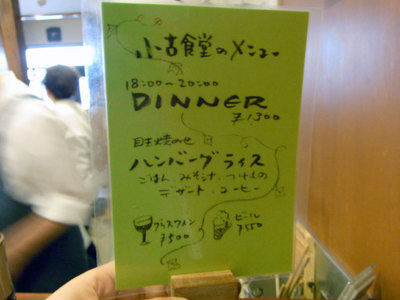 小古食堂のメニュー
18:00〜20:00
DINNER
¥1300
目玉焼のせ
ハンバーグライス
ごはん、みそ汁、つけもの
デザート、コーヒー
グラスワイン
¥500
ビール
¥550